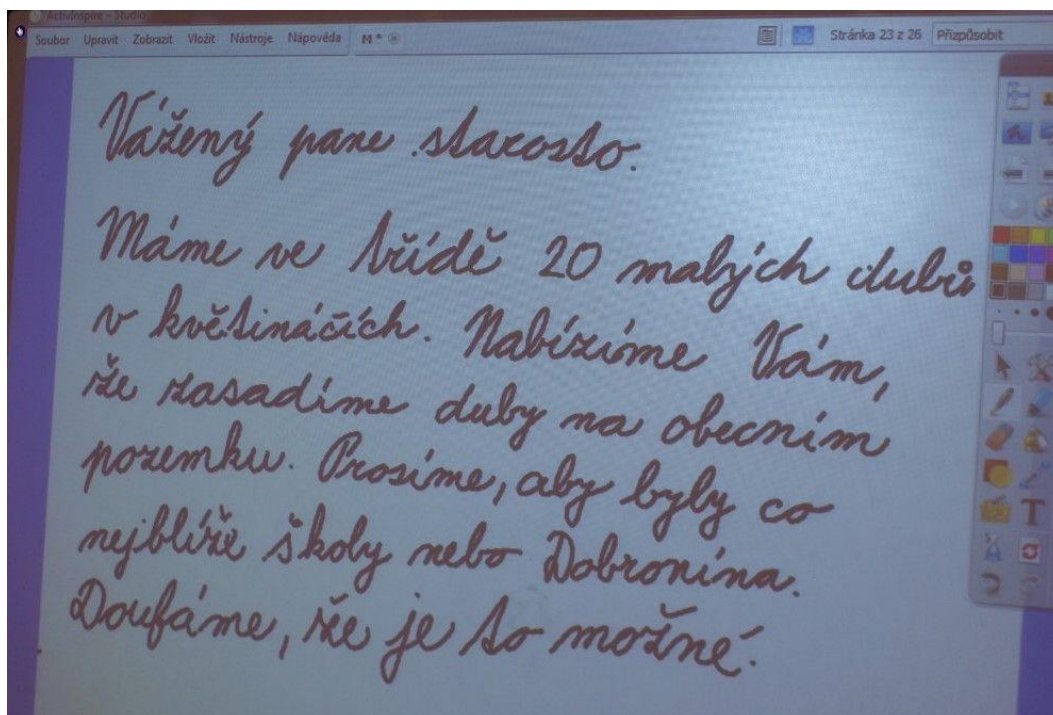 ActivInspire - Studio
Soubor Upravit Zobrazit Vložit Nástroje Nápověda Stránka 23 z 26 Přizpůsobit
Vážený pane starosto.
Máme ve třídě 20 malých dubů
v květináčích. Nabízíme Vám,
že zasadíme duby na obecním
pozemku. Prosíme, aby byly co
nejblíže školy nebo Dobronína.
Doufáme, že je to možné.
T